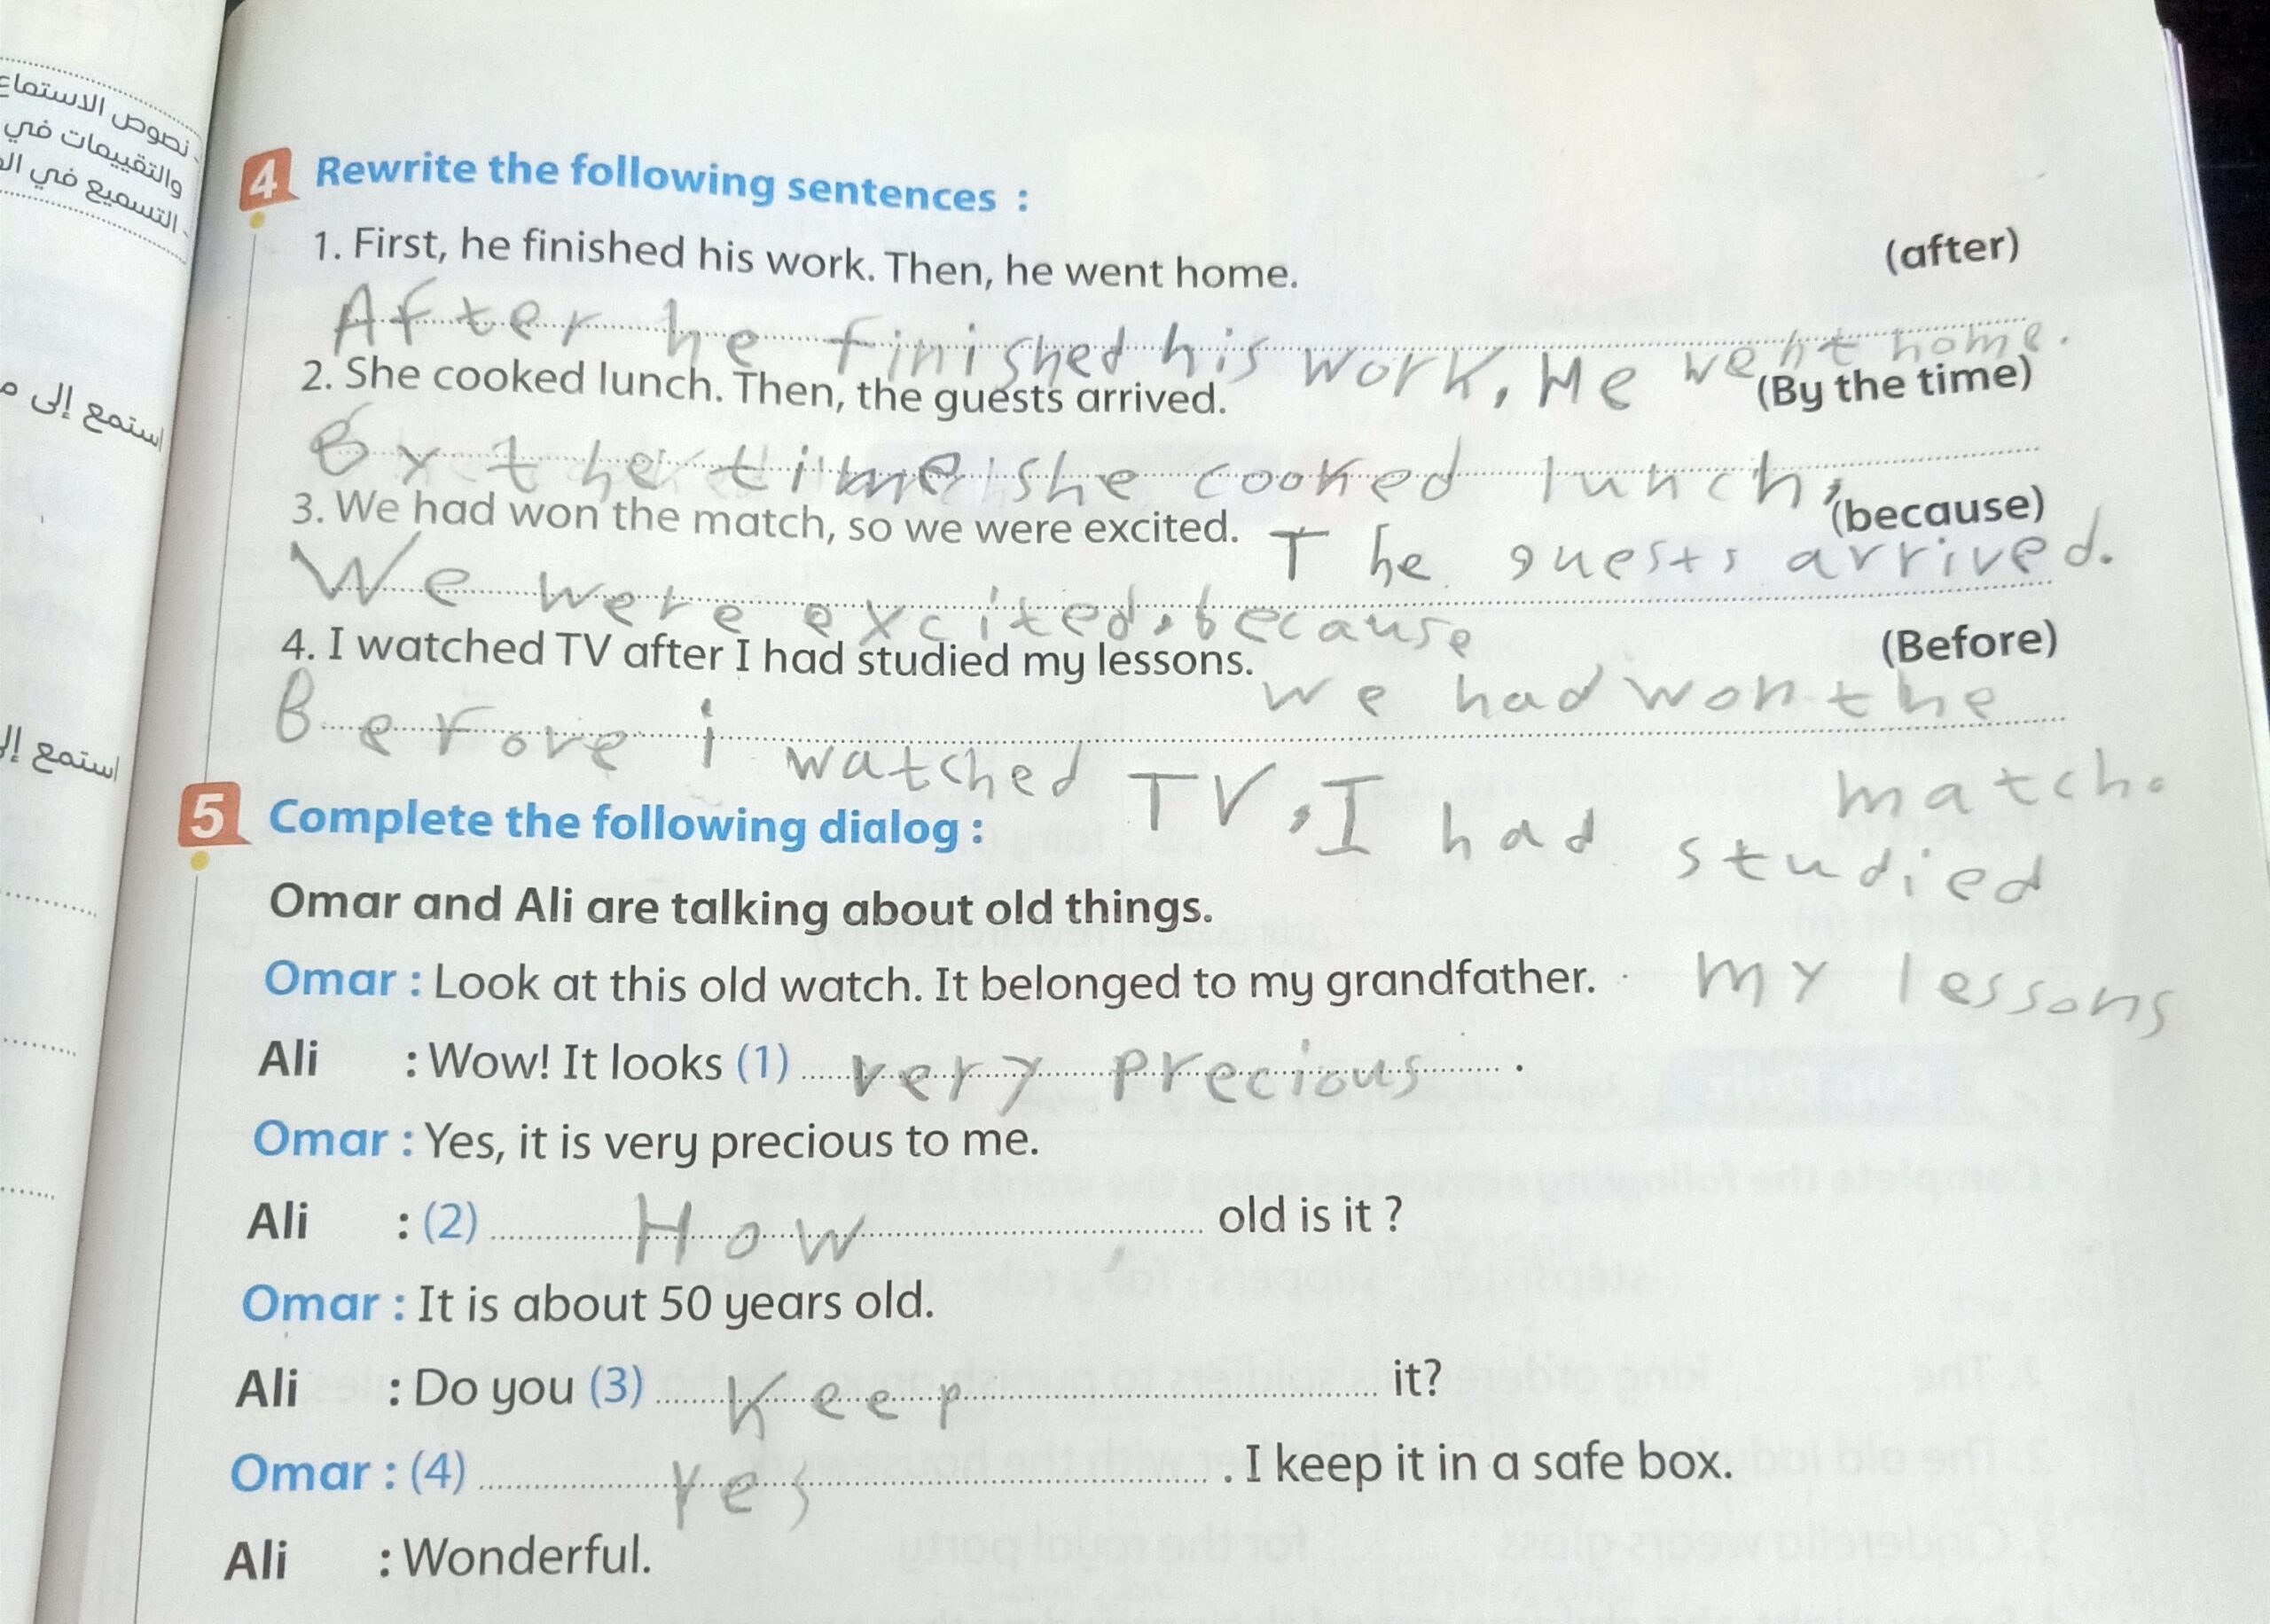 نصوص الاستماع
والتقييمات في
التسميع في
استمع إلى
استمع
4 Rewrite the following sentences :
1. First, he finished his work. Then, he went home. (after)
After he finished his work, He went home.
2. She cooked lunch. Then, the guests arrived. (By the time)
By the time she cooked lunch,
The guests arrived.
3. We had won the match, so we were excited. (because)
We were excited, because
we had won the
match.
4. I watched TV after I had studied my lessons. (Before)
Before i watched TV, I had studied
my lessons
5 Complete the following dialog :
Omar and Ali are talking about old things.
Omar : Look at this old watch. It belonged to my grandfather.
Ali : Wow! It looks (1) very precious .
Omar : Yes, it is very precious to me.
Ali : (2) How old is it ?
Omar : It is about 50 years old.
Ali : Do you (3) Keep it?
Omar : (4) Yes . I keep it in a safe box.
Ali : Wonderful.